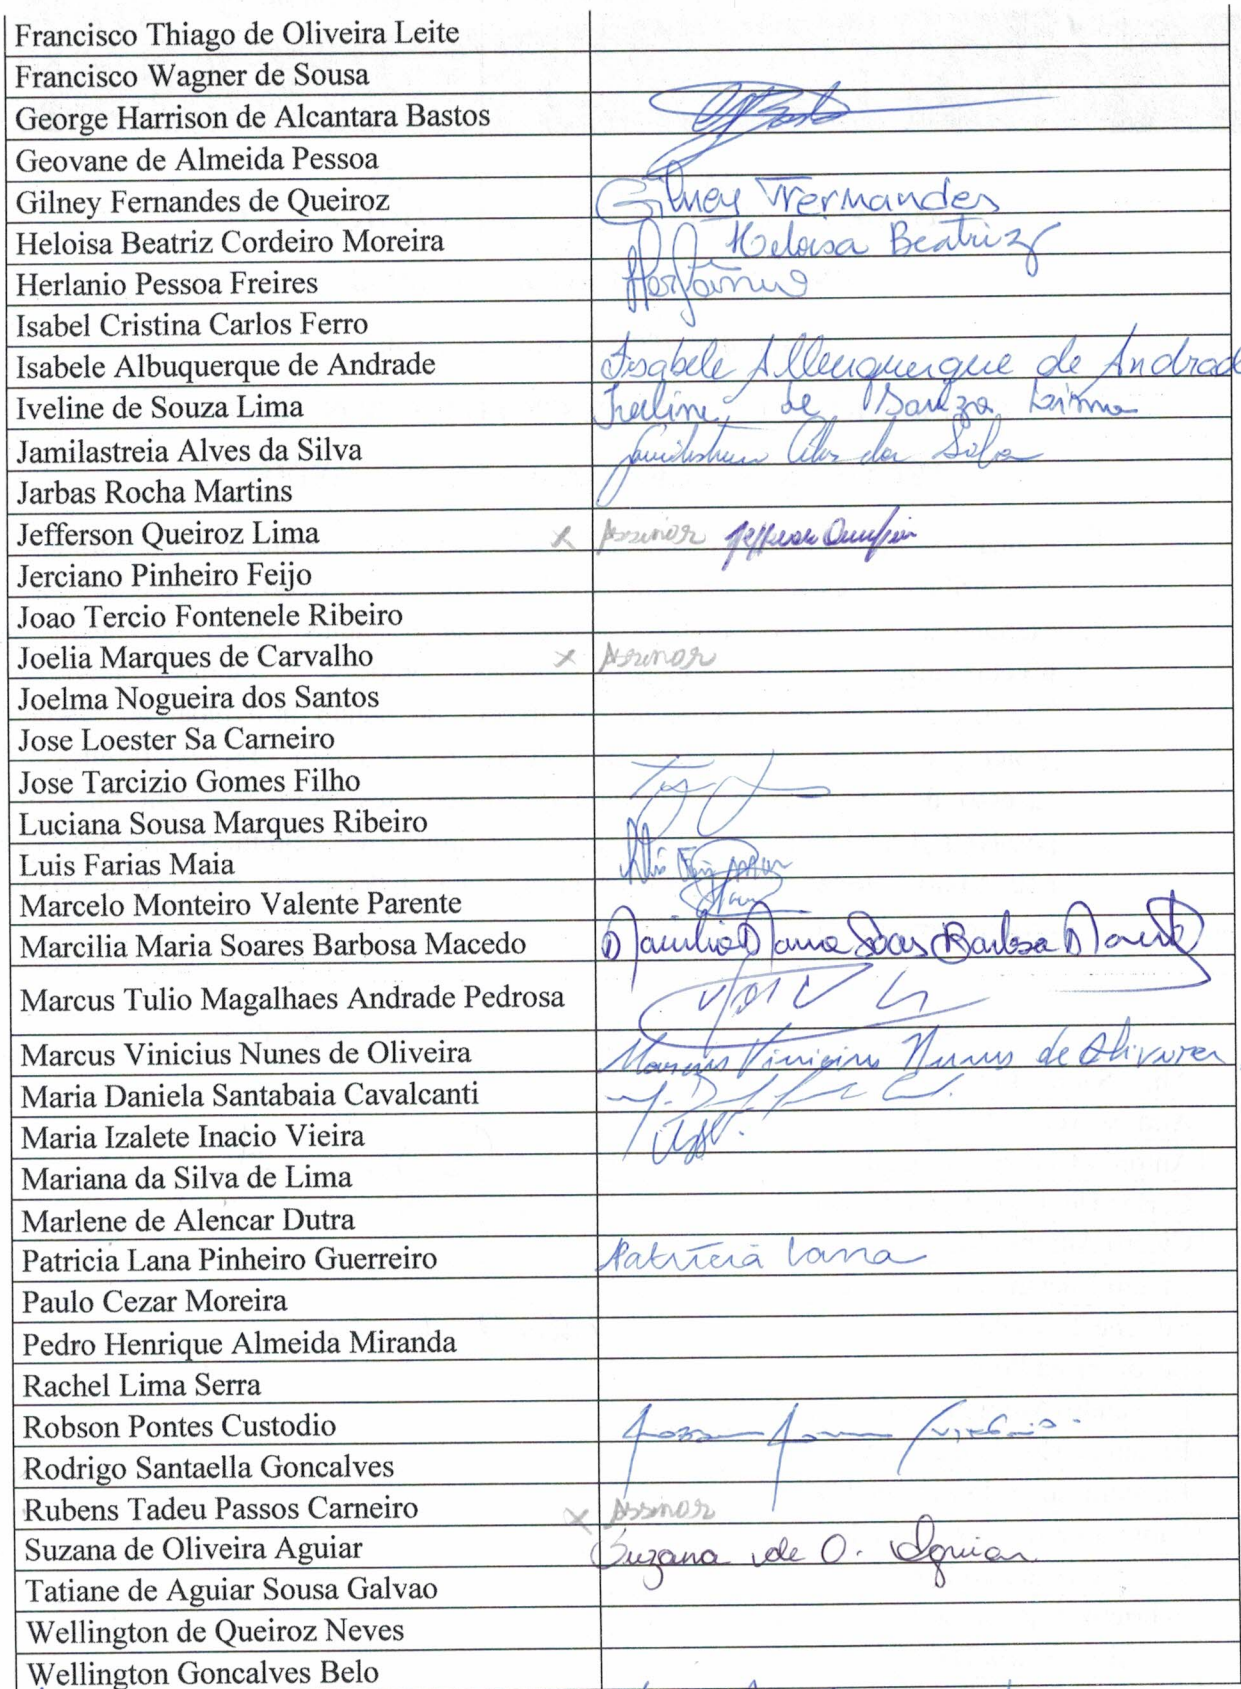 Francisco Thiago de Oliveira Leite
Francisco Wagner de Sousa
George Harrison de Alcantara Bastos
Geovane de Almeida Pessoa
Gilney Fernandes de Queiroz Gilney Fernandes
Heloisa Beatriz Cordeiro Moreira Heloisa Beatriz
Herlanio Pessoa Freires
Isabel Cristina Carlos Ferro
Isabele Albuquerque de Andrade Isabele Albuquerque de Andrade
Iveline de Souza Lima Iveline de Souza Lima
Jamilastreia Alves da Silva Jamilastreia Alves da Silva
Jarbas Rocha Martins
Jefferson Queiroz Lima x Assinar Jefferson
Jerciano Pinheiro Feijo
Joao Tercio Fontenele Ribeiro
Joelia Marques de Carvalho x Assinar
Joelma Nogueira dos Santos
Jose Loester Sa Carneiro
Jose Tarcizio Gomes Filho
Luciana Sousa Marques Ribeiro
Luis Farias Maia
Marcelo Monteiro Valente Parente
Marcilia Maria Soares Barbosa Macedo Marcilia Maria Soares Barbosa Macedo
Marcus Tulio Magalhaes Andrade Pedrosa
Marcus Vinicius Nunes de Oliveira Marcus Vinicius Nunes de Oliveira
Maria Daniela Santabaia Cavalcanti
Maria Izalete Inacio Vieira
Mariana da Silva de Lima
Marlene de Alencar Dutra
Patricia Lana Pinheiro Guerreiro Patrícia Lana
Paulo Cezar Moreira
Pedro Henrique Almeida Miranda
Rachel Lima Serra
Robson Pontes Custodio
Rodrigo Santaella Goncalves
Rubens Tadeu Passos Carneiro x Assinar
Suzana de Oliveira Aguiar Suzana de O. Aguiar
Tatiane de Aguiar Sousa Galvao
Wellington de Queiroz Neves
Wellington Goncalves Belo